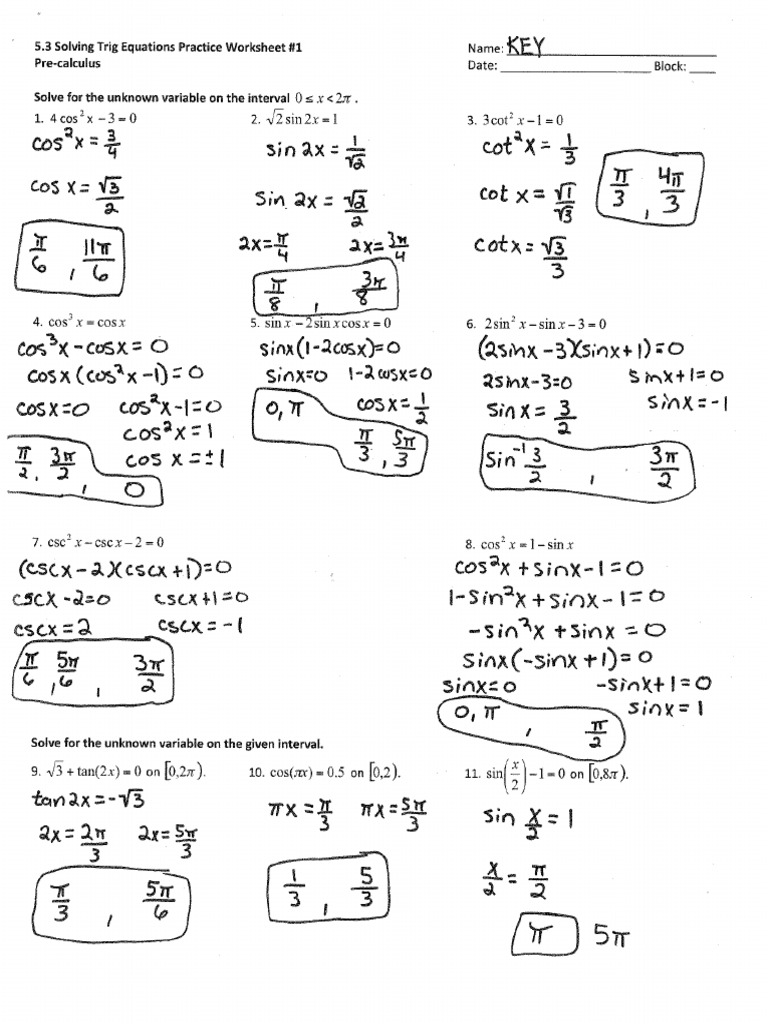 5.3 Solving Trig Equations Practice Worksheet #1
Name: KEY
Pre-calculus
Date: ____ Block: ____
Solve for the unknown variable on the interval 0 ≤ x < 2π .
1. 4 cos² x − 3 = 0
cos²x = 3/4
cos x = √3/2
π/6 , 11π/6
2. √2 sin 2x = 1
sin 2x = 1/√2
sin 2x = √2/2
2x = π/4 2x = 3π/4
π/8 , 3π/8
3. 3cot² x − 1 = 0
cot²x = 1/3
cot x = √1/√3
cotx = √3/3
π/3 , 4π/3
4. cos³ x = cos x
cos³x − cosx = 0
cosx (cos²x −1) = 0
cosx = 0 cos²x −1 = 0
cos²x = 1
cos x = ±1
π/2 , 3π/2 , 0
5. sin x − 2sin x cos x = 0
sinx(1−2cosx) = 0
sinx=0 1−2cosx=0
0, π cosx = 1/2
π/3 , 5π/3
6. 2sin² x − sin x − 3 = 0
(2sinx −3)(sinx +1) = 0
2sinx −3=0 sinx+1=0
sinx = 3/2 sinx = −1
sin⁻¹ 3/2 , 3π/2
7. csc² x − csc x − 2 = 0
(cscx −2)(cscx +1) = 0
cscx −2=0 cscx +1=0
cscx = 2 cscx = −1
π/6 , 5π/6 , 3π/2
8. cos² x = 1 − sin x
cos²x + sinx −1 = 0
1−sin²x + sinx −1 = 0
−sin²x + sinx = 0
sinx(−sinx +1) = 0
sinx=0 −sinx+1=0
0, π , π/2 sinx = 1
Solve for the unknown variable on the given interval.
9. √3 + tan(2x) = 0 on [0,2π).
tan2x = −√3
2x = 2π/3 2x = 5π/3
π/3 , 5π/6
10. cos(πx) = 0.5 on [0,2).
πx = π/3 πx = 5π/3
1/3 , 5/3
11. sin(x/2) − 1 = 0 on [0,8π).
sin x/2 = 1
x/2 = π/2
π 5π